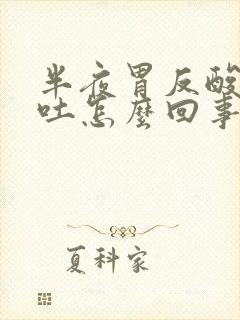 半夜胃反酸
吐怎麽回事
夏科家